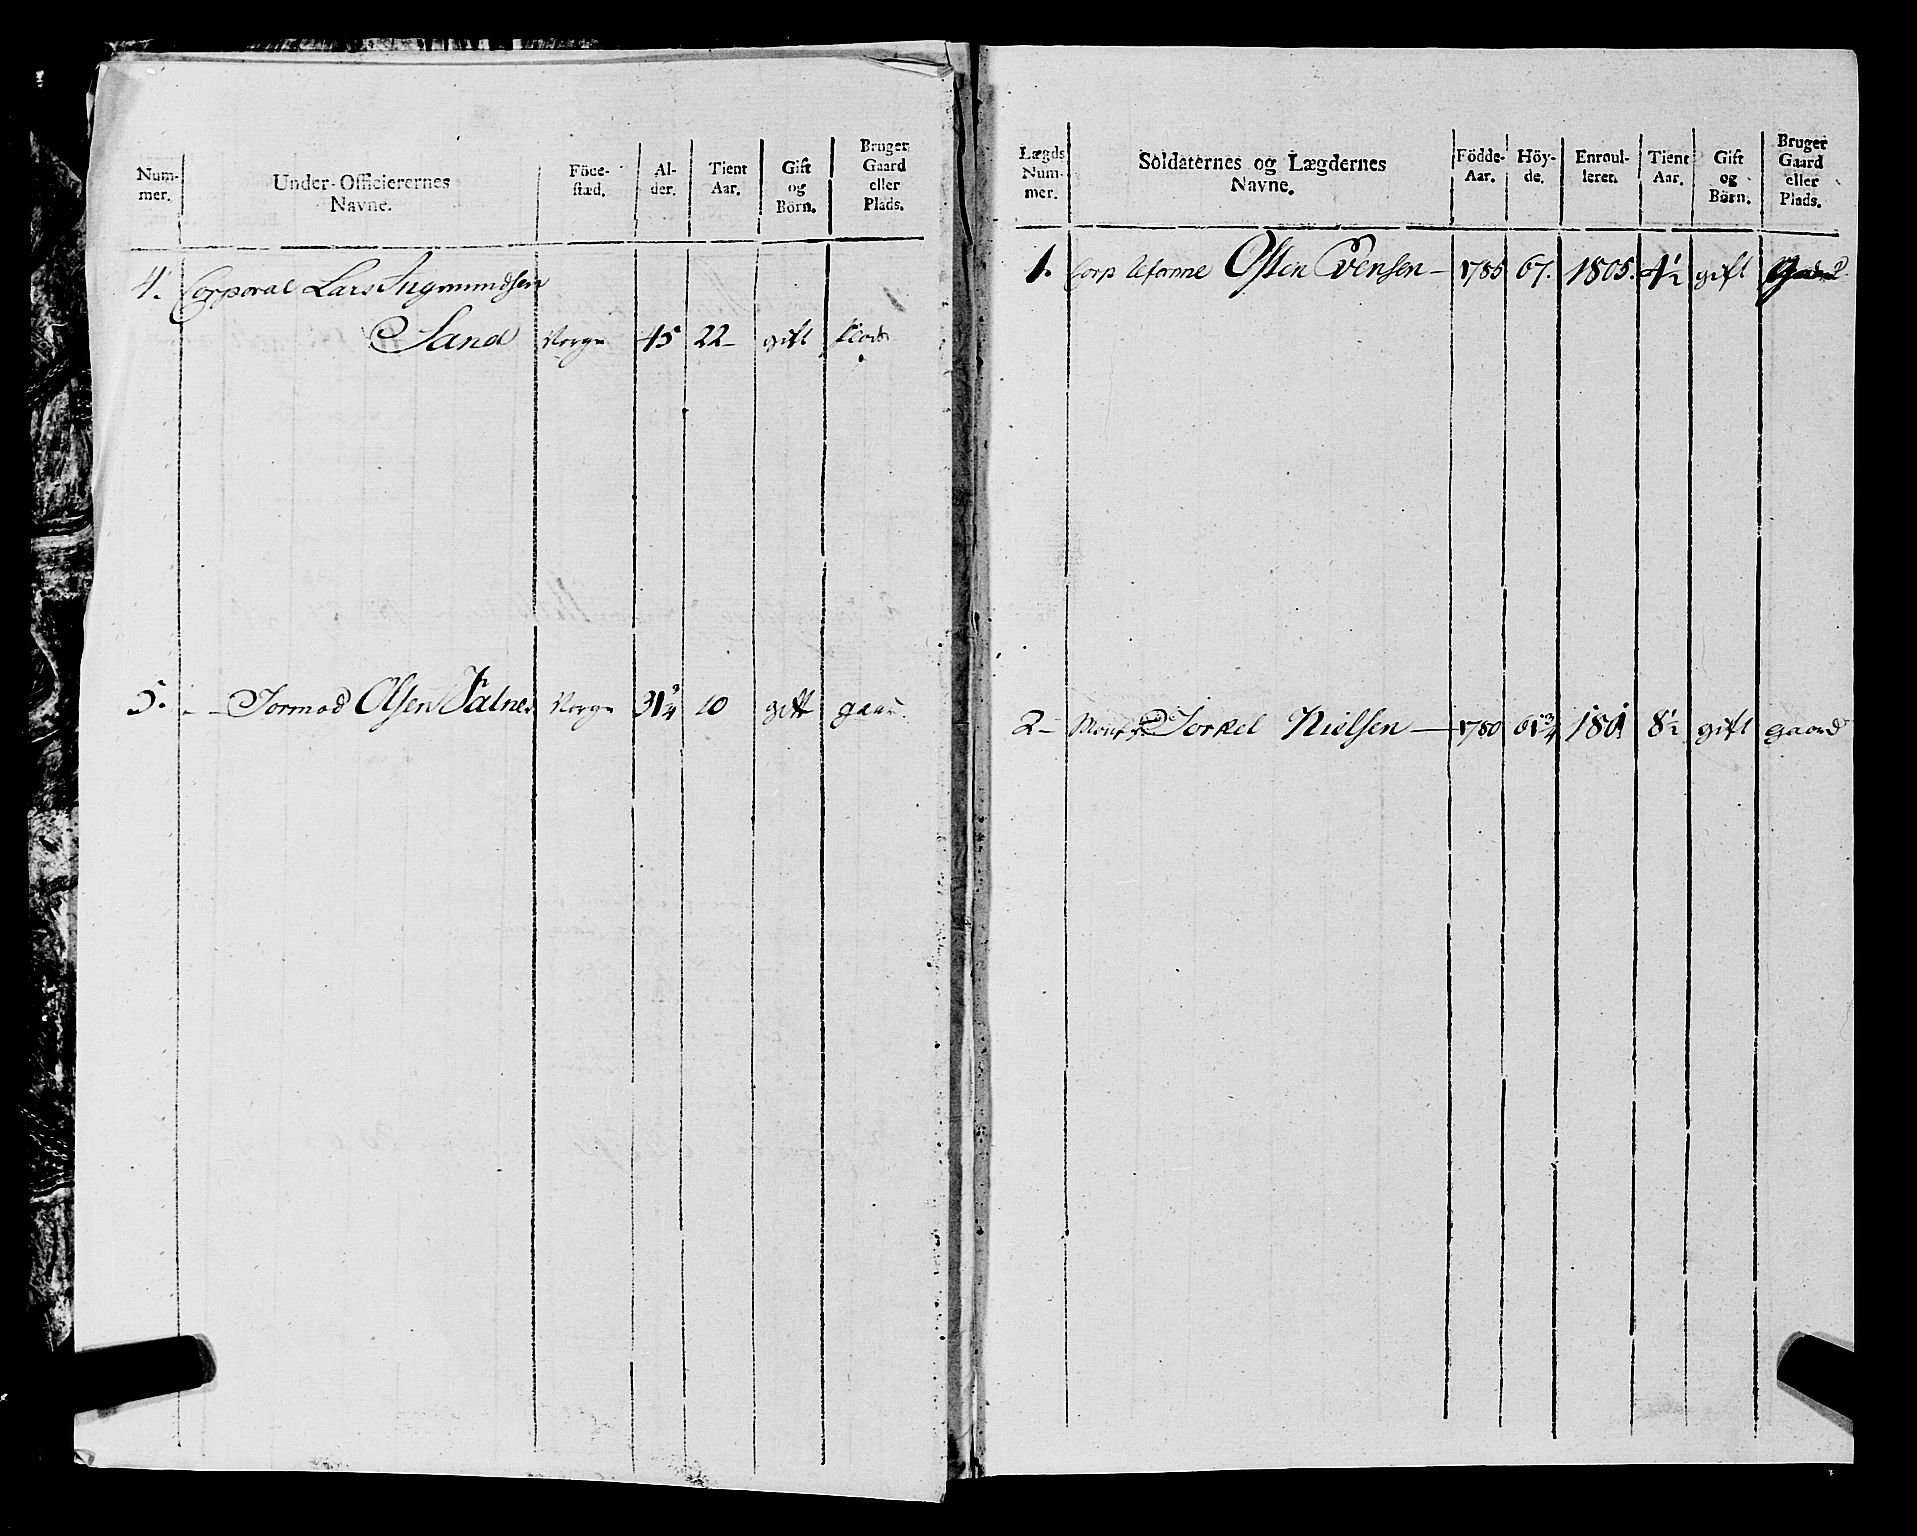 Num-
mer.
Under-Officierernes
Navne.
Föde-
stæd.
Al-
der.
Tient
Aar.
Gift
og
Börn.
Bruger
Gaard
eller
Plads.
4. Corporal Lars Ingmundsen
Sand Norge 45 22 gift Plads
5. Tormod Olsen Norge 31 3/4 10 gift gaar
Lægds
Num-
mer.
Soldaternes og Lægdernes
Navne.
Födde-
Aar.
Höy-
de.
Enroul-
leret.
Tient
Aar.
Gift
og
Börn.
Bruger
Gaard
eller
Plads.
1. Corp Osten Evensen 1785 67. 1805. 4 1/2 gift Gaard
2 Torkel Nielsen 1780 61 3/4 1801 8 1/2 gift gaard